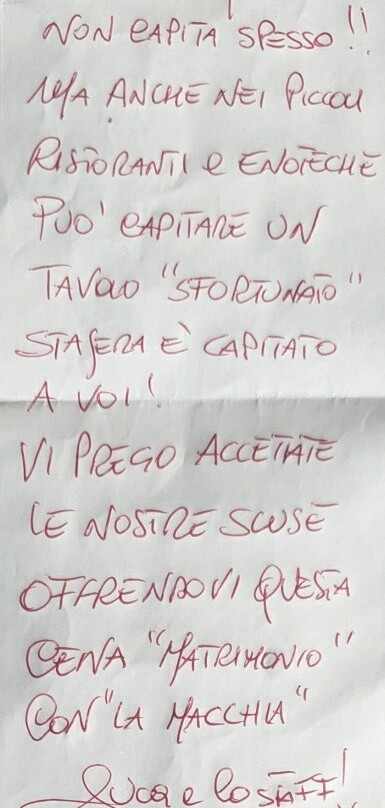 NON CAPITA SPESSO !!
MA ANCHE NEI PICCOLI
RISTORANTI e ENOTECHE
PUO' CAPITARE UN
TAVOLO "SFORTUNATO"
STASERA È CAPITATO
A VOI!
VI PREGO ACCETTATE
LE NOSTRE SCUSE
OFFRENDOVI QUESTA
CENA "MATRIMONIO"
CON "LA MACCHIA"
Luca e lo STAFF!